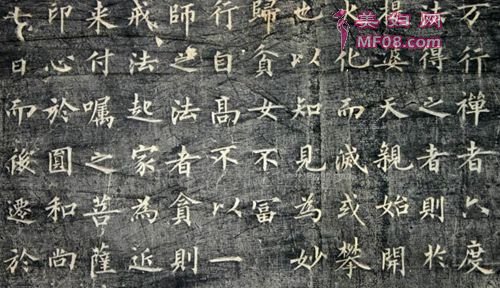 万行禪者六度
法得之者則於
婆天親始開
火化而滅或攀
也以知見為妙
歸貪女不冨
行自高不以一
師之法者貪則
戒法起家為近
来付囑之菩薩
印心於圓和尚
七日而後遷於
美妇网
MF08.com